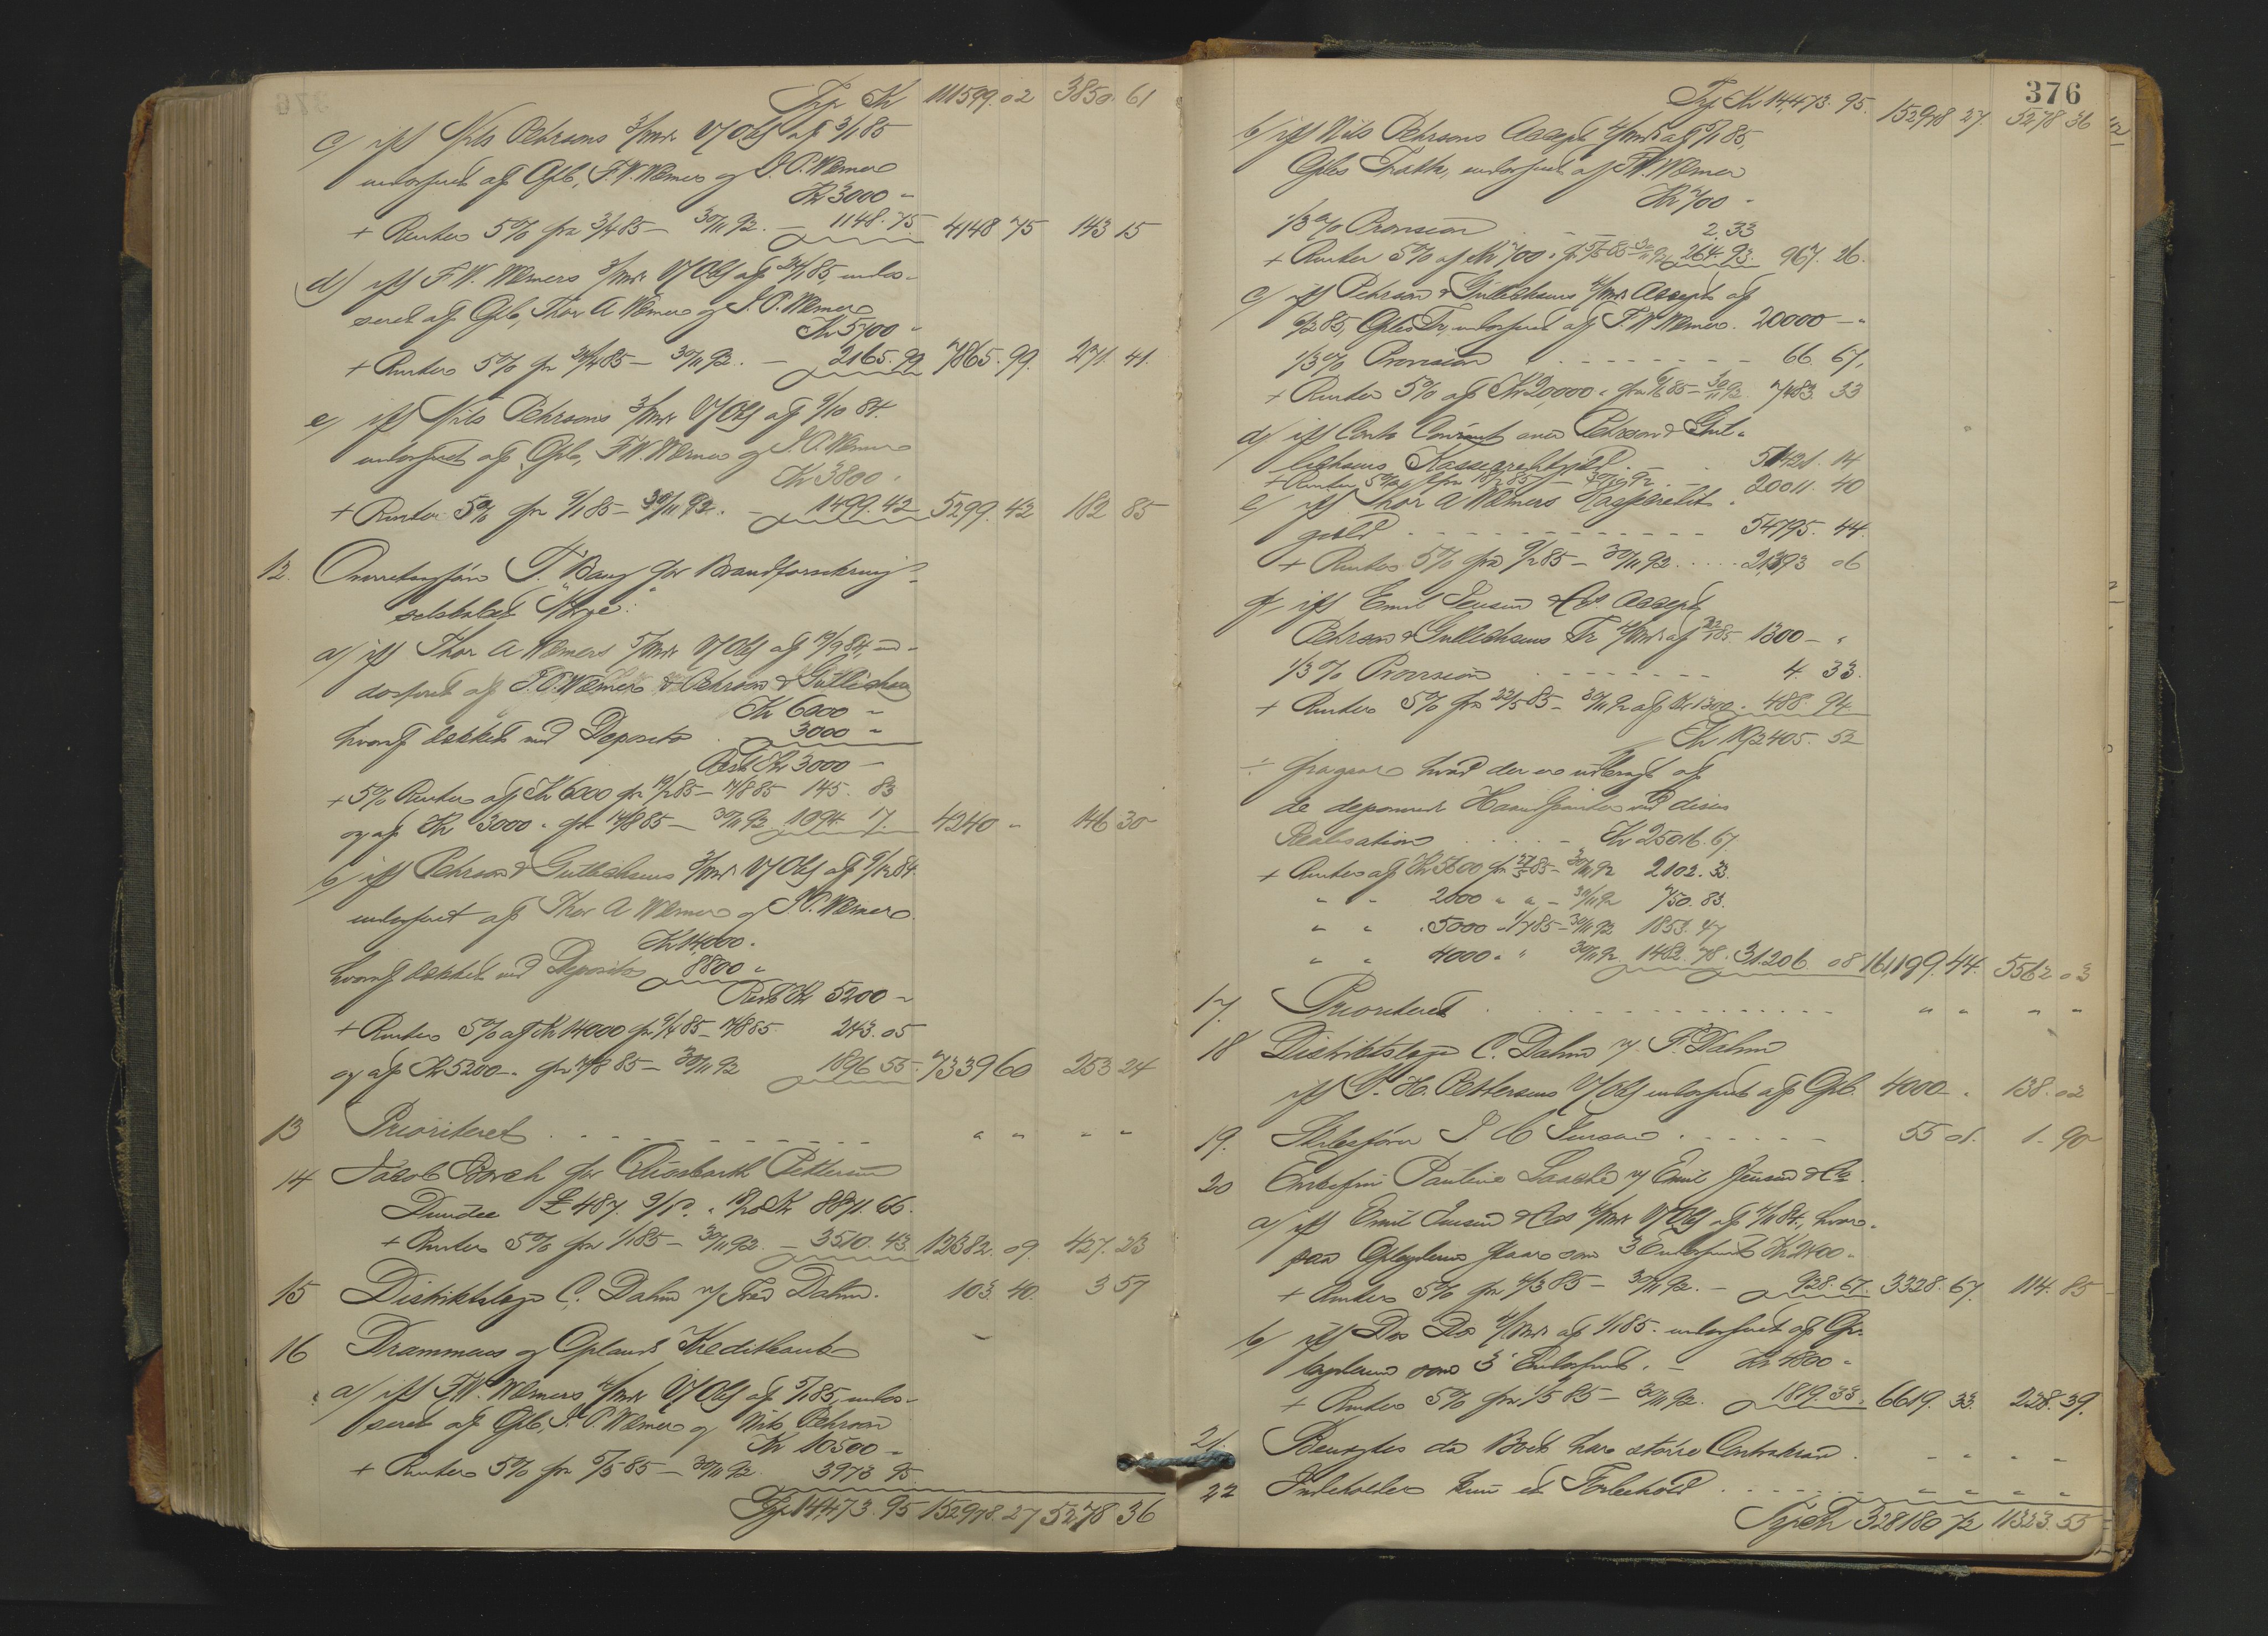 Trp Kr 111599.02 3850.61
c) iflg Nils Pehrsons 3/mdr V/Obl af 3/1 85
endosseret af Gfb, F.W. Wærner og J.P. Wærner
Kr 3000 -
+ Renter 5% fra 3/4 85 - 30/11 92. - 1148.75. 4148 75 143 15
d) iflg F.W. Wærners 3/mdr V/Obl af 24/1 85, endos-
seret af Gfb, Thor A Wærner og J.P. Wærner
Kr 5700 -
+ Renter 5% fr 24/4 85 - 30/11 92. - 2165.99 7865.99. 271.41.
e) iflg Nils Pehrsons 3/mdr V/Obl af 9/10 84.
endosseret af Gfb, F.W. Wærner og J.P. Wærner
Kr 3800 -
+ Renter 5% fr 9/1 85 - 30/11 92. - 1499.42 5299.42 182 85
12. Overretssagfører T. Bang for Brandforsikrings-
selskabet "Norge":
a) iflg Thor A Wærners 5/mdr V/Obl af 19/9 84, en-
dosseret af J.P. Wærner & Pehrson & Gullichsen
Kr 6000 -
hvoraf dækket ved Deposito 3000 -
Rest Kr 3000 -
+ 5% Renter af Kr 6000 fr 19/2 85 - 14/8 85 145. 83
og af Kr 3000 - fr 14/8 85 - 30/11 92 1094 17. 4240 - 146 30
b) iflg Pehrson & Gullichsens 3/mdr V/Obl af 9/12 84.
endosseret af Thor A Wærner og J.P. Wærner
Kr 14000.
hvoraf dækket ved Deposito 8800 -
Rest Kr 5200 -
+ Renter 5% af Kr 14000 fr 9/4 85 - 14/8 85. 243.05
og af Kr 5200 -. fr 14/8 85 - 30/11 92 1896 55. 7339 60 253 24
13 Prioriteret - - - - - - - - - - " " " "
14 Jacob Borch for Pettersen
Dundee £ 487. 9/10. " Kr 8871.66.
+ Renter 5% fra 1/1 85 - 30/11 92. - 3510.43. 12382.09. 427.23
15 Distriktslæge C. Dahm v/ Fred Dahm. 103.40. 3 57
16 Drammens og Oplands Kreditbank
a) iflg F.W. Wærners 4/mdr V/Obl af 5/1 85, endos-
seret af Gfb, J.P. Wærner og Nils Pehrson
Kr 10500 -
+ Renter 5% fra 5/5 85 - 30/11 92. 3973 95.
Trp 14473.95 152978.27 5278 36
376
Trp Kr 14,473.95. 152978 27. 5278 36
b) iflg Nils Pehrsons Accept 4/mdr af 5/1 85,
Gfbs Tratte, endosseret af F.W. Wærner
Kr 700 -
1/3 % Provision 2.33
+ Renter 5% af Kr 700 - fr 5/5 85 - 30/11 92 264.93. 967. 26.
c) iflg Pehrson & Gullichsens 4/mdr Accept af
6/2 85, Gfbs Tr, endosseret af F.W. Wærner. 20000 - "
1/3 % Provision - - - - - - - 66.67.
+ Renter 5% af Kr 20,000 - fra 6/6 85 - 30/11 92. 7483 33
d) iflg Conto Courant over Pehrson & Gul-
lichsens Kassecreditgjæld. - 51421.14
+ Renter 5% fra 18/2 85 - 30/11 92. - 20011.40
e) iflg Thor A Wærners Kassecredit-
gjæld - - - - - - - - - - - 54795.44.
+ Renter 5% fra 9/2 85 - 30/11 92 . . . . 21393 06
f) iflg Emil Jensen & Co. Accept
Pehrson & Gullichsens Tr 4/mdr af 22/1 85 1300 - "
1/3 % Provision - - - - - - - - 4.33.
+ Renter 5% fra 22/5 85 - 30/11 92 af Kr 1300. 488.94
Kr 192405.52
÷ fragaar hvad der er udbragt af
de deponerede Haandpanter ved disses
Realisation . . . . - Kr 25016.67.
+ Renter af Kr 5600 fr 27/5 85 - 30/11 92 2102.33.
" - 2000 " " - 30/11 92 750.83.
" " 5000 - 1/7 85 - 30/11 92 1853.47
" " 4000 - " 30/11 92 1482.78. 31206.08 161,199.44. 5562 03
17. Prioriteret . - - - - - - - - - - - " " " "
18 Distriktslæge C. Dahm v/ F. Dahm
iflg P.H. Pettersens V/Obl endosseret af Gfb. 4000 - . 138.02
19. Skibsfører J C Jensen . - - - - - 55 01. 1.90
20 Enkefru Pauline Laache v/ Emil Jensen & Co.
a) iflg Emil Jensen & Cos 4/mdr V/Obl af 4/11 84, hvor-
paa Opbyderne staar som 3 Endossent Kr 2400 -
+ Renter 5% fra 4/3 85 - 30/11 92. - 928.67. 3328.67. 114.85
b) iflg Dos Do 4/mdr af 1/1 85. endosseret af Op-
byderne som 3' Endossent. - Kr 4800 -
+ Renter 5% fra 1/5 85 - 30/11 92. 1819.33. 6619.33. 228.39.
21. Benyttes da Boet har større Contrakrav . - - - -
22 Indeholder kun et Forbehold . - - - - - " " " "
Trp Kr 328180 72 11323.55